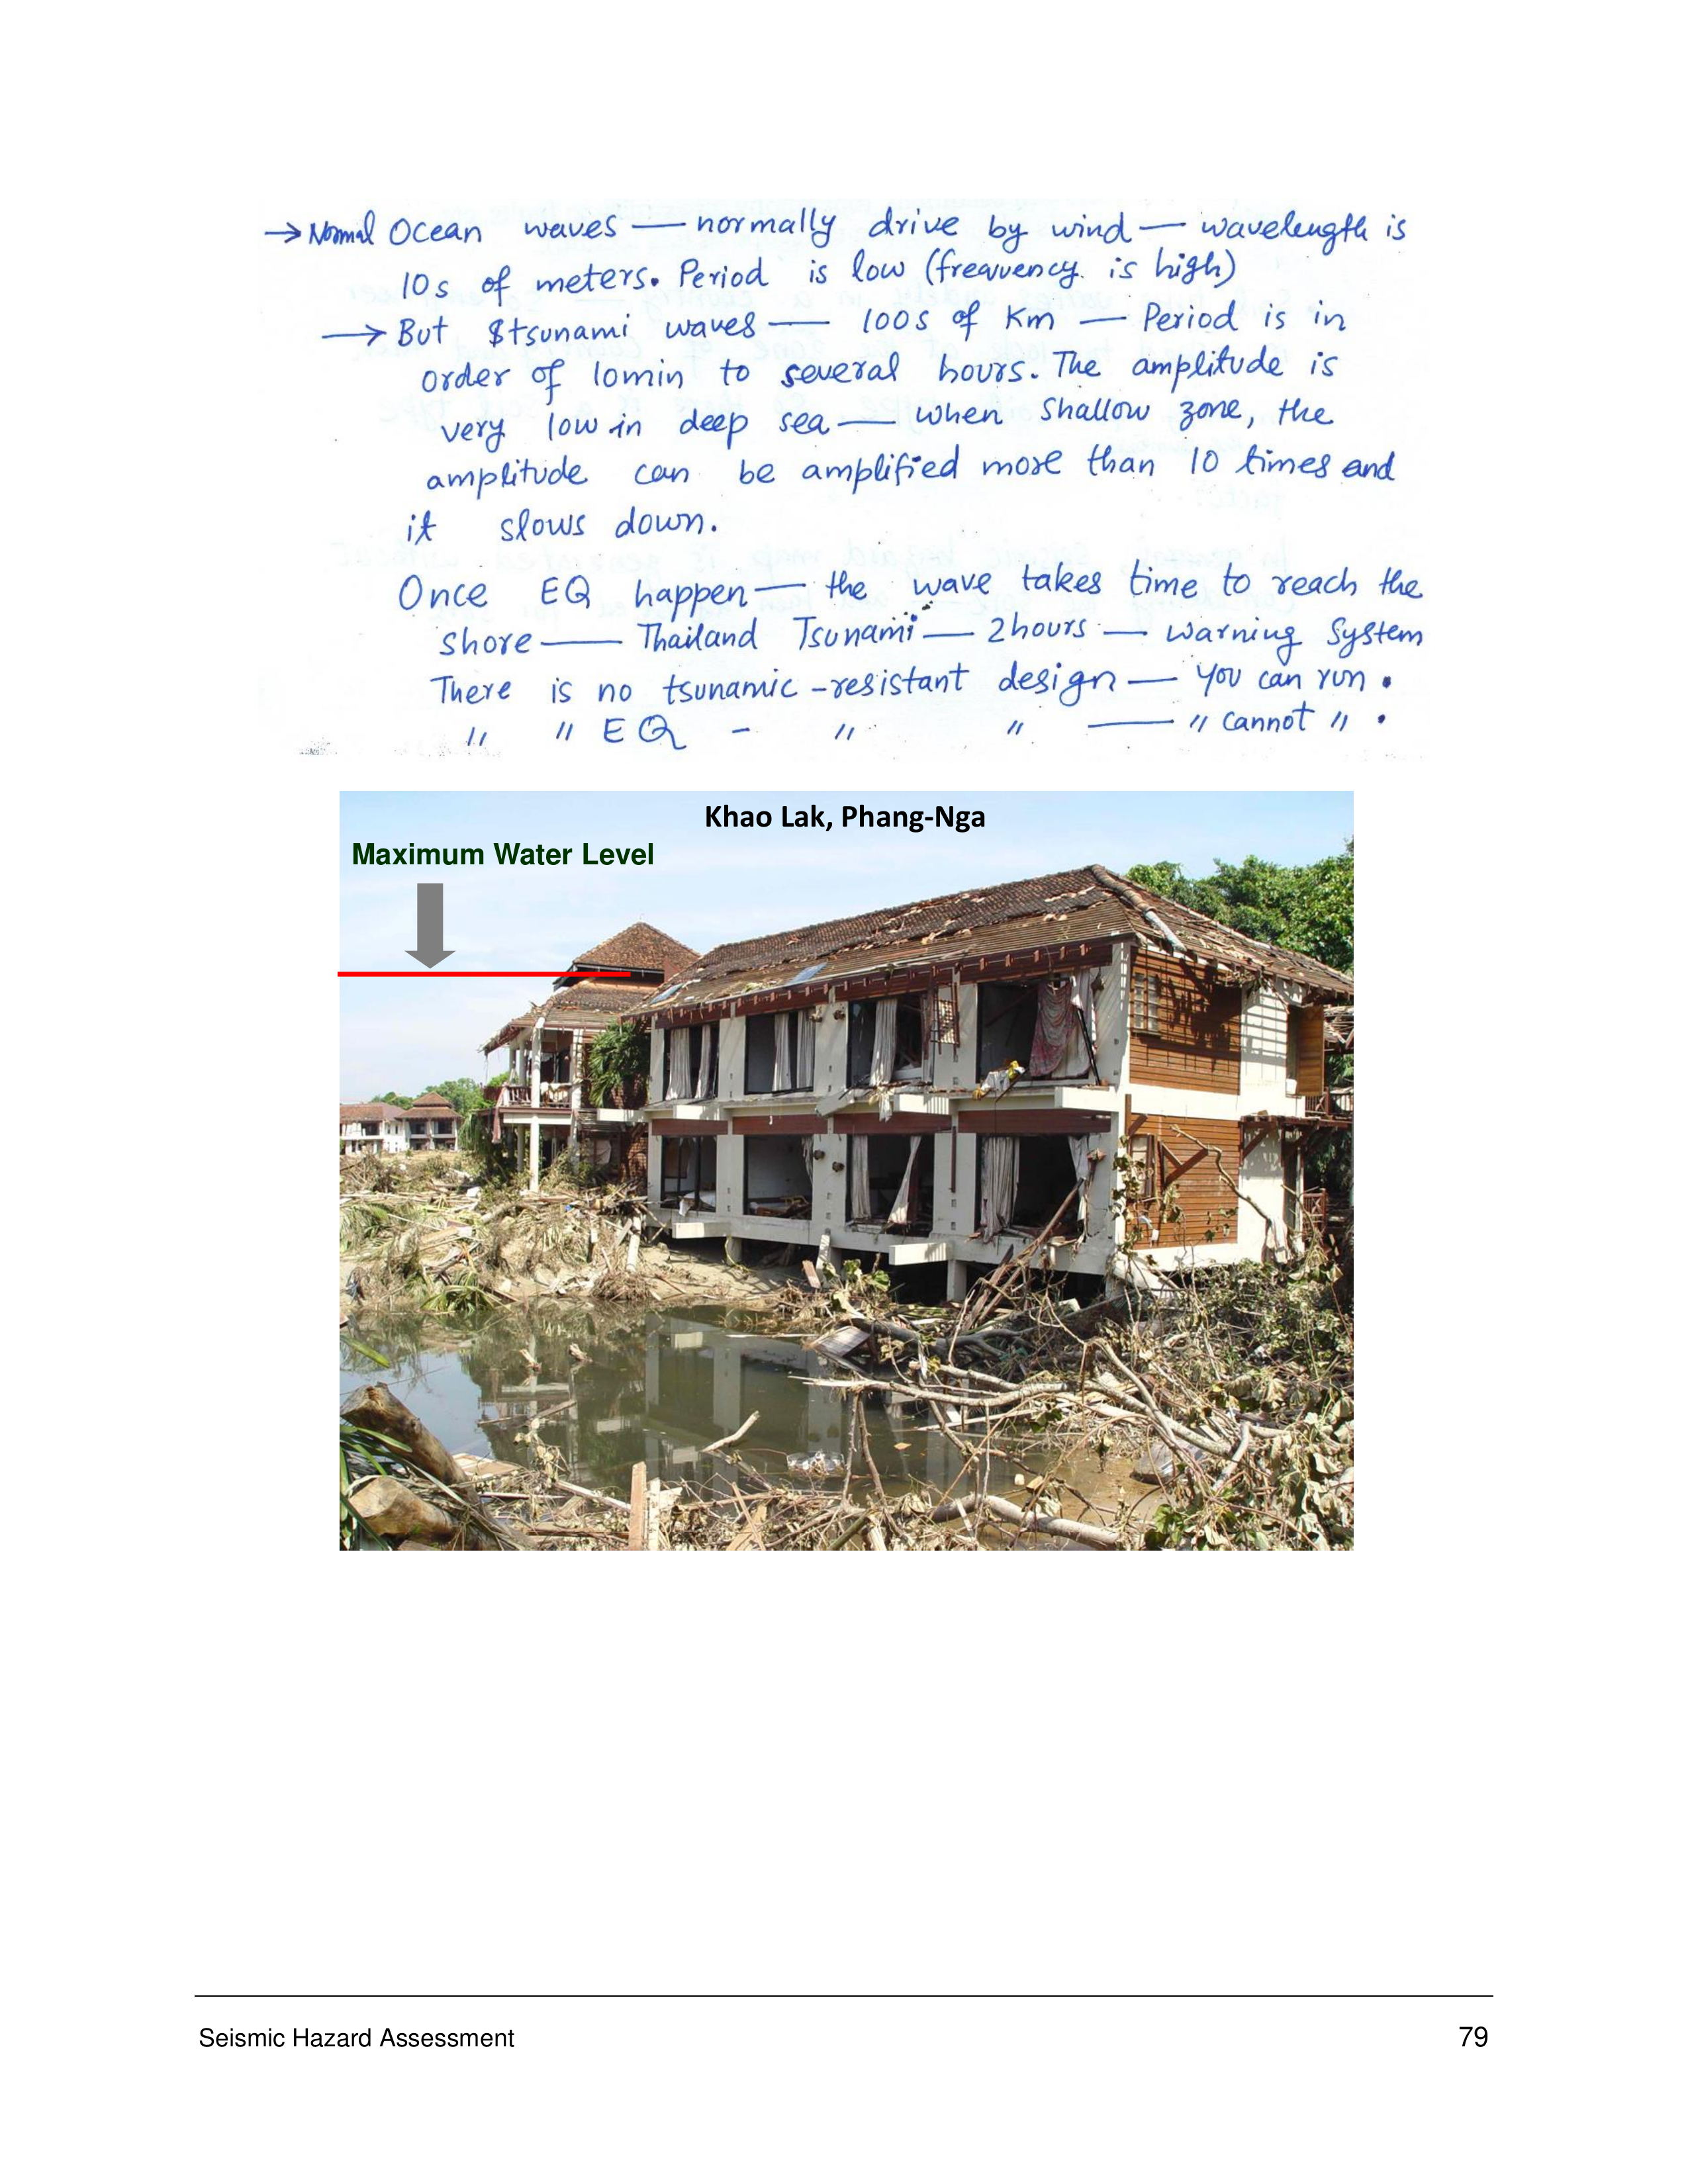 → Normal Ocean waves — normally drive by wind — wavelength is
10s of meters. Period is low (frequency is high)
→ But $tsunami waves — 100s of Km — Period is in
order of 10min to several hours. The amplitude is
very low in deep sea — when shallow zone, the
amplitude can be amplified more than 10 times and
it slows down.
Once EQ happen — the wave takes time to reach the
shore — Thailand Tsunami — 2hours — warning system
There is no tsunamic-resistant design — you can run.
" " EQ - " " — " cannot " .
Khao Lak, Phang-Nga
Maximum Water Level
Seismic Hazard Assessment 79